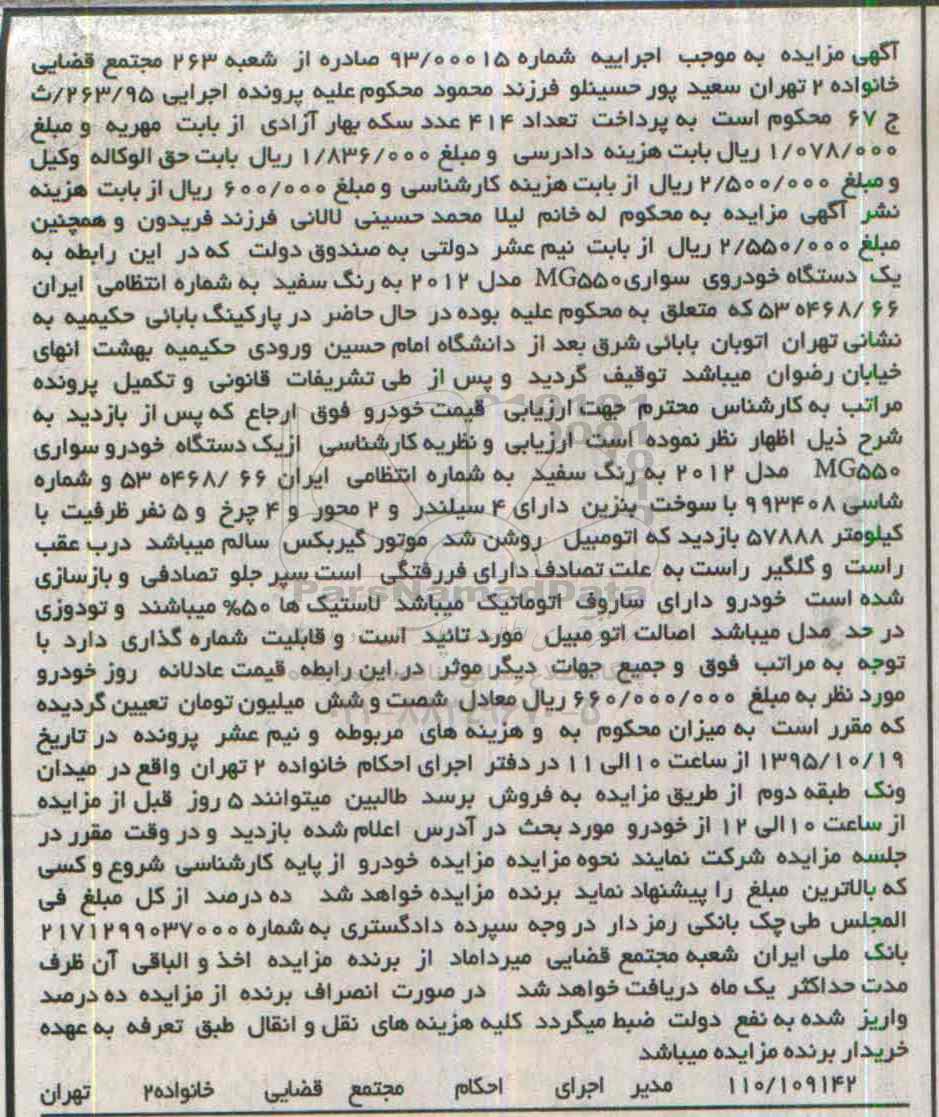 آگهی مزایده به موجب اجراییه شماره ۹۳/۰۰۰۱۵ صادره از شعبه ۲۶۳ مجتمع قضایی
خانواده ۲ تهران سعید پور حسینلو فرزند محمود محکوم علیه پرونده اجرایی ۲۶۳/۹۵/ث
ج ۶۷ محکوم است به پرداخت تعداد ۴۱۴ عدد سکه بهار آزادی از بابت مهریه و مبلغ
۱/۰۷۸/۰۰۰ ریال بابت هزینه دادرسی و مبلغ ۱/۸۳۶/۰۰۰ ریال بابت حق الوکاله وکیل
و مبلغ ۲/۵۰۰/۰۰۰ ریال از بابت هزینه کارشناسی و مبلغ ۶۰۰/۰۰۰ ریال از بابت هزینه
نشر آگهی مزایده به محکوم له خانم لیلا محمد حسینی لالانی فرزند فریدون و همچنین
مبلغ ۲/۵۵۰/۰۰۰ ریال از بابت نیم عشر دولتی به صندوق دولت که در این رابطه به
یک دستگاه خودروی سواری MG۵۵۰ مدل ۲۰۱۲ به رنگ سفید به شماره انتظامی ایران
۶۶ /۴۶۸ه ۵۳ که متعلق به محکوم علیه بوده در حال حاضر در پارکینگ بابائی حکیمیه به
نشانی تهران اتوبان بابائی شرق بعد از دانشگاه امام حسین ورودی حکیمیه بهشت انهای
خیابان رضوان میباشد توقیف گردید و پس از طی تشریفات قانونی و تکمیل پرونده
مراتب به کارشناس محترم جهت ارزیابی قیمت خودرو فوق ارجاع که پس از بازدید به
شرح ذیل اظهار نظر نموده است ارزیابی و نظریه کارشناسی ازیک دستگاه خودرو سواری
MG۵۵۰ مدل ۲۰۱۲ به رنگ سفید به شماره انتظامی ایران ۶۶ /۴۶۸ه ۵۳ و شماره
شاسی ۹۹۳۴۰۸ با سوخت بنزین دارای ۴ سیلندر و ۲ محور و ۴ چرخ و ۵ نفر ظرفیت با
کیلومتر ۵۷۸۸۸ بازدید که اتومبیل روشن شد موتور گیربکس سالم میباشد درب عقب
راست و گلگیر راست به علت تصادف دارای فررفتگی است سپر جلو تصادفی و بازسازی
شده است خودرو دارای ساروف اتوماتیک میباشد لاستیک ها ۵۰% میباشند و تودوزی
در حد مدل میباشد اصالت اتو مبیل مورد تائید است و قابلیت شماره گذاری دارد با
توجه به مراتب فوق و جمیع جهات دیگر موثر در این رابطه قیمت عادلانه روز خودرو
مورد نظر به مبلغ ۶۶۰/۰۰۰/۰۰۰ ریال معادل شصت و شش میلیون تومان تعیین گردیده
که مقرر است به میزان محکوم به و هزینه های مربوطه و نیم عشر پرونده در تاریخ
۱۳۹۵/۱۰/۱۹ از ساعت ۱۰الی ۱۱ در دفتر اجرای احکام خانواده ۲ تهران واقع در میدان
ونک طبقه دوم از طریق مزایده به فروش برسد طالبین میتوانند ۵ روز قبل از مزایده
از ساعت ۱۰الی ۱۲ از خودرو مورد بحث در آدرس اعلام شده بازدید و در وقت مقرر در
جلسه مزایده شرکت نمایند نحوه مزایده مزایده خودرو از پایه کارشناسی شروع و کسی
که بالاترین مبلغ را پیشنهاد نماید برنده مزایده خواهد شد ده درصد از کل مبلغ فی
المجلس طی چک بانکی رمز دار در وجه سپرده دادگستری به شماره ۲۱۷۱۲۹۹۰۳۷۰۰۰
بانک ملی ایران شعبه مجتمع قضایی میرداماد از برنده مزایده اخذ و الباقی آن ظرف
مدت حداکثر یک ماه دریافت خواهد شد در صورت انصراف برنده از مزایده ده درصد
واریز شده به نفع دولت ضبط میگردد کلیه هزینه های نقل و انقال طبق تعرفه به عهده
خریدار برنده مزایده میباشد
۱۱۰/۱۰۹۱۴۲ مدیر اجرای احکام مجتمع قضایی خانواده۲ تهران
ParsNamadData